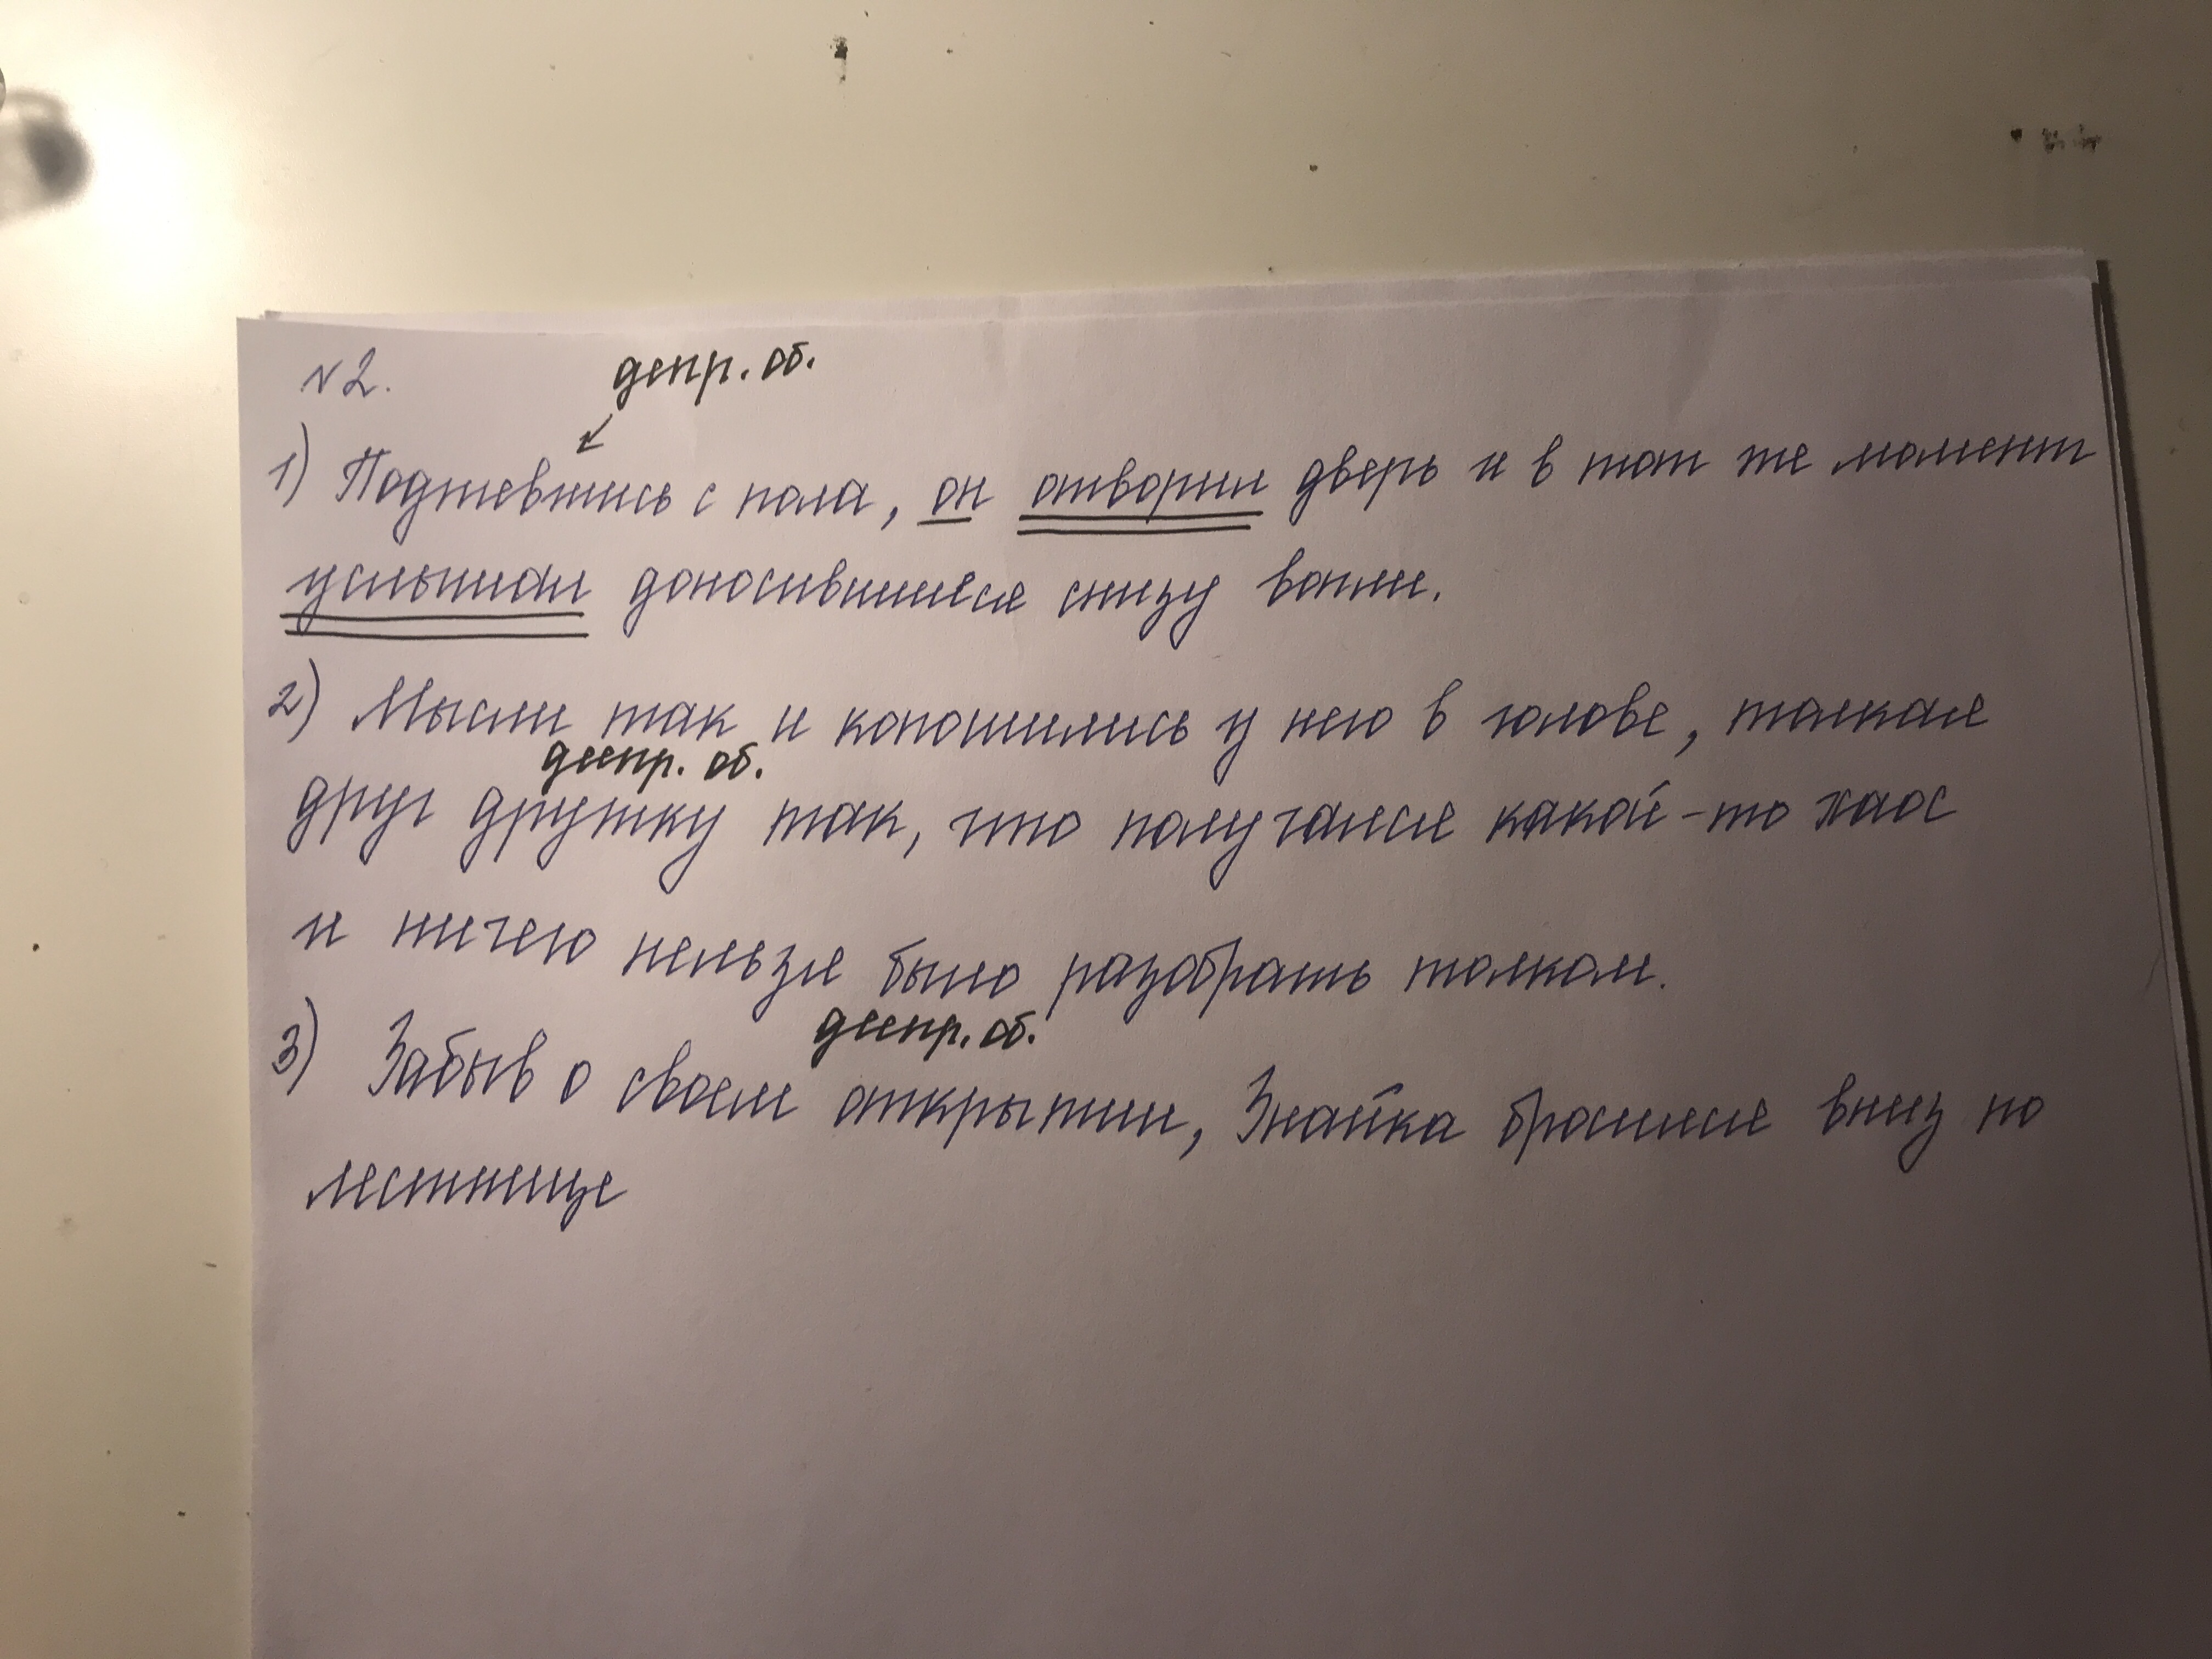 №2.
депр. об.
1) Поднявшись с пола, он отворил дверь и в тот же момент
услышал доносившиеся снизу вопли.
2) Мысли так и копошились у него в голове, толкая
деепр. об.
друг дружку так, что получался какой-то хаос
и ничего нельзя было разобрать толком.
деепр. об.
3) Забыв о своем открытии, Знайка бросился вниз по
лестнице